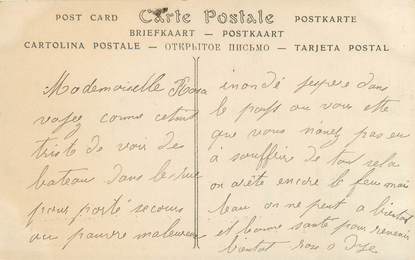 POST CARD Carte Postale POSTKARTE
BRIEFKAART — POSTKAART
CARTOLINA POSTALE — ОТКРЫТОЕ ПИСЬМО — TARJETA POSTAL
Mademoiselle Rosa
voyez comme cetait
triste de voir des
bateau dans le rue
pour porté secours
au pauvre maleureu
inondé jespere dans
le pays ou vous ette
que vous navez pas eu
a souffrire de tout sela
on arete encire le feu mais
beau on ne peut a bientot
et bonne santé pour revenir
bientot